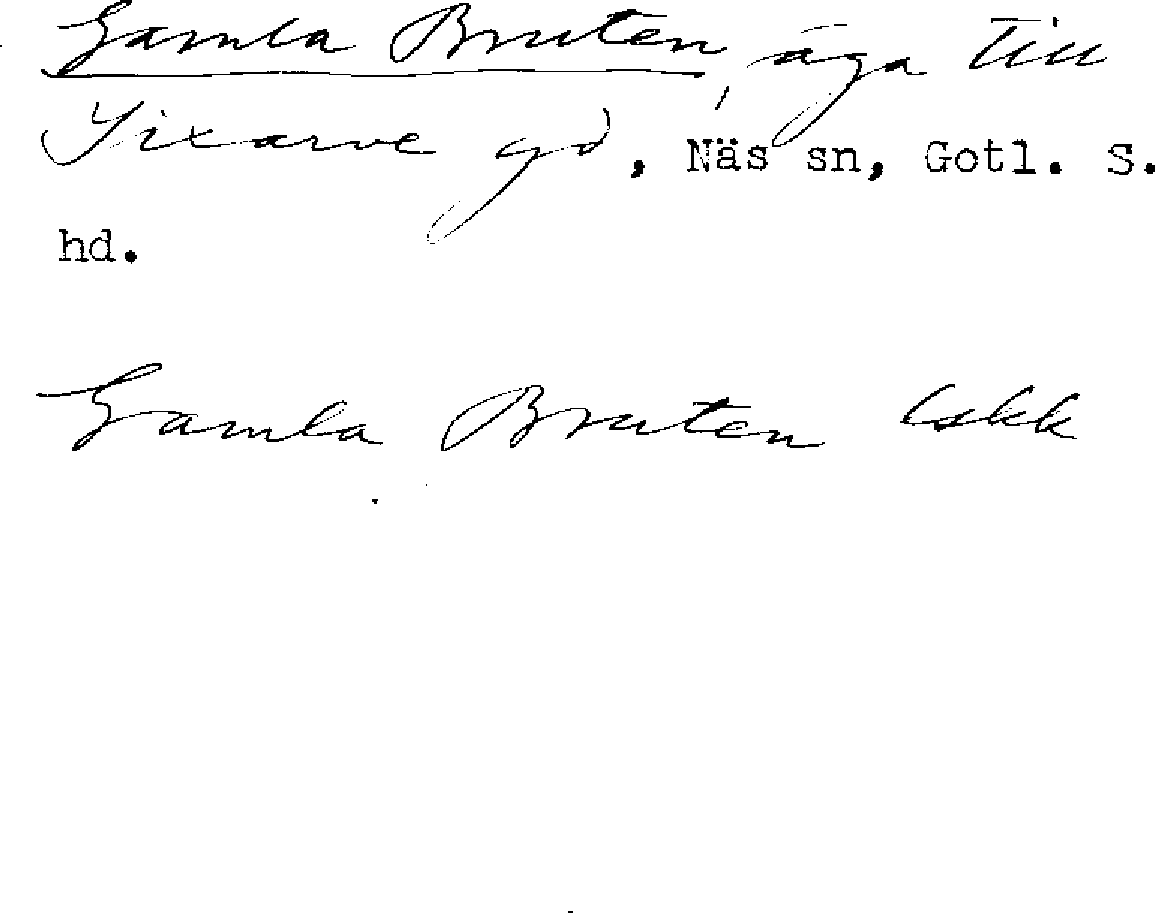 Gamla Bruten, äga till
Sixarve gd, Näs sn, Gotl. S.
hd.
Gamla Bruten Lskk